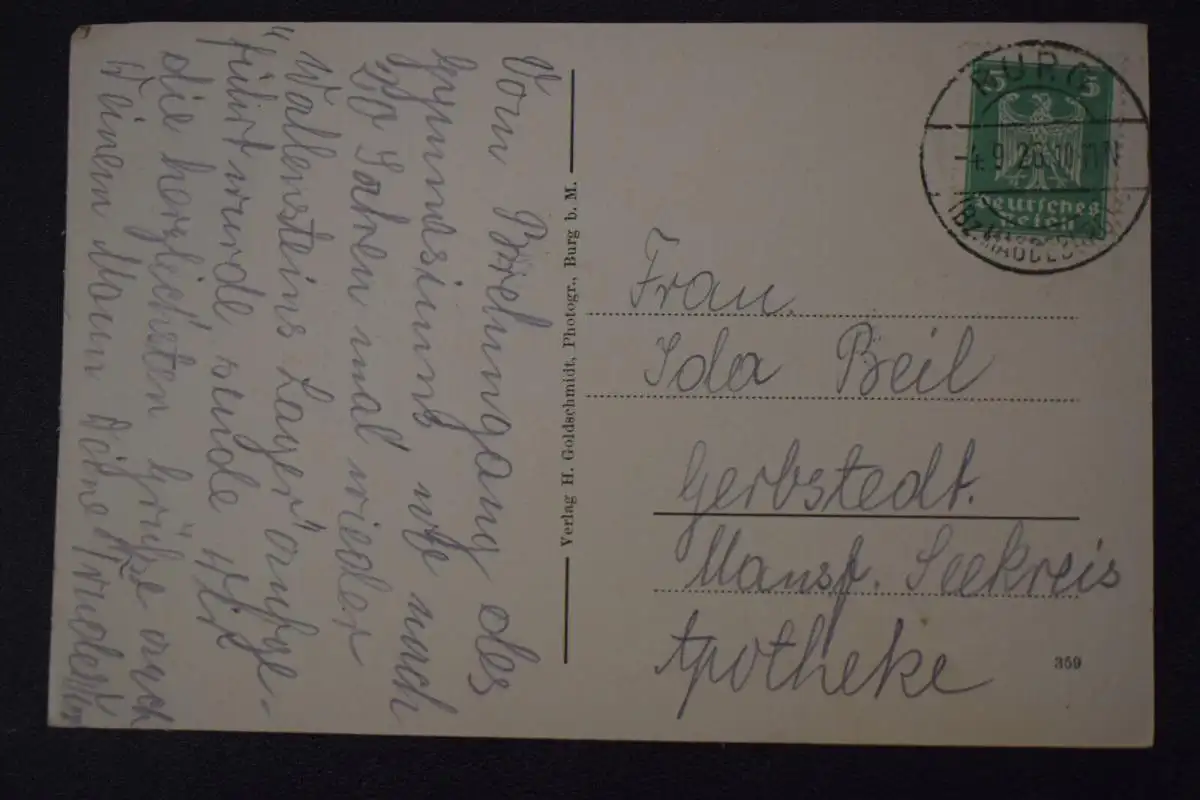 Vom
des
Gymnasiums, wo nach
20 Jahren mal wieder
"Wallensteins Lager" aufge-
führt wurde, sende
die herzlichsten Grüße auch
Deinem Mann Deine
Verlag H. Goldschmidt, Photogr., Burg b. M.
BURG
-4.9.26.10
(BZ. MAGDEBURG)
5 5
Deutsches
Reich
Frau.
Ida Beil
Gerbstedt.
Mansf. Seekreis
Apotheke
359